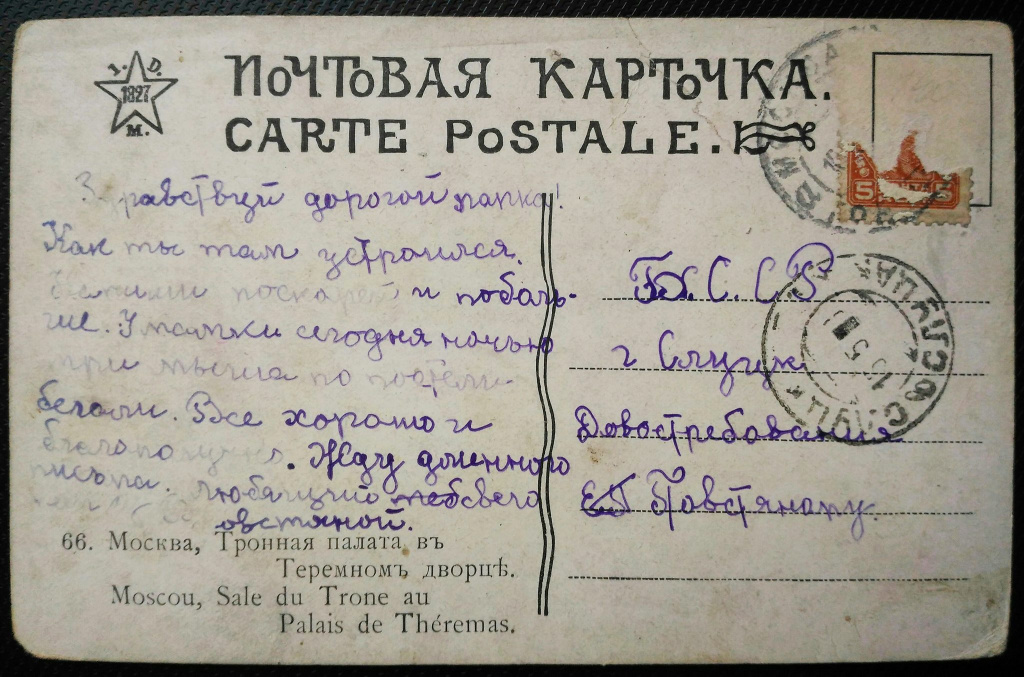 I. D.
1827
M.
ПОЧТОВАЯ КАРТОЧКА.
CARTE POSTALE.
5
Здравствуй дорогой папка!
Как ты там устроился.
и поболь-
ше. У мамки сегодня ночью
три мыша по постели
бегали. Все хорошо и
благополучно. Жду длинного
письма. Любящий
овстяной.
66. Москва, Тронная палата въ
Теремномъ дворцѣ.
Moscou, Sale du Trone au
Palais de Théremas.
Б.С.С.Р
г Слуцк
Довостребования
Повстяному
СЛУЦК
СЛУЦАК